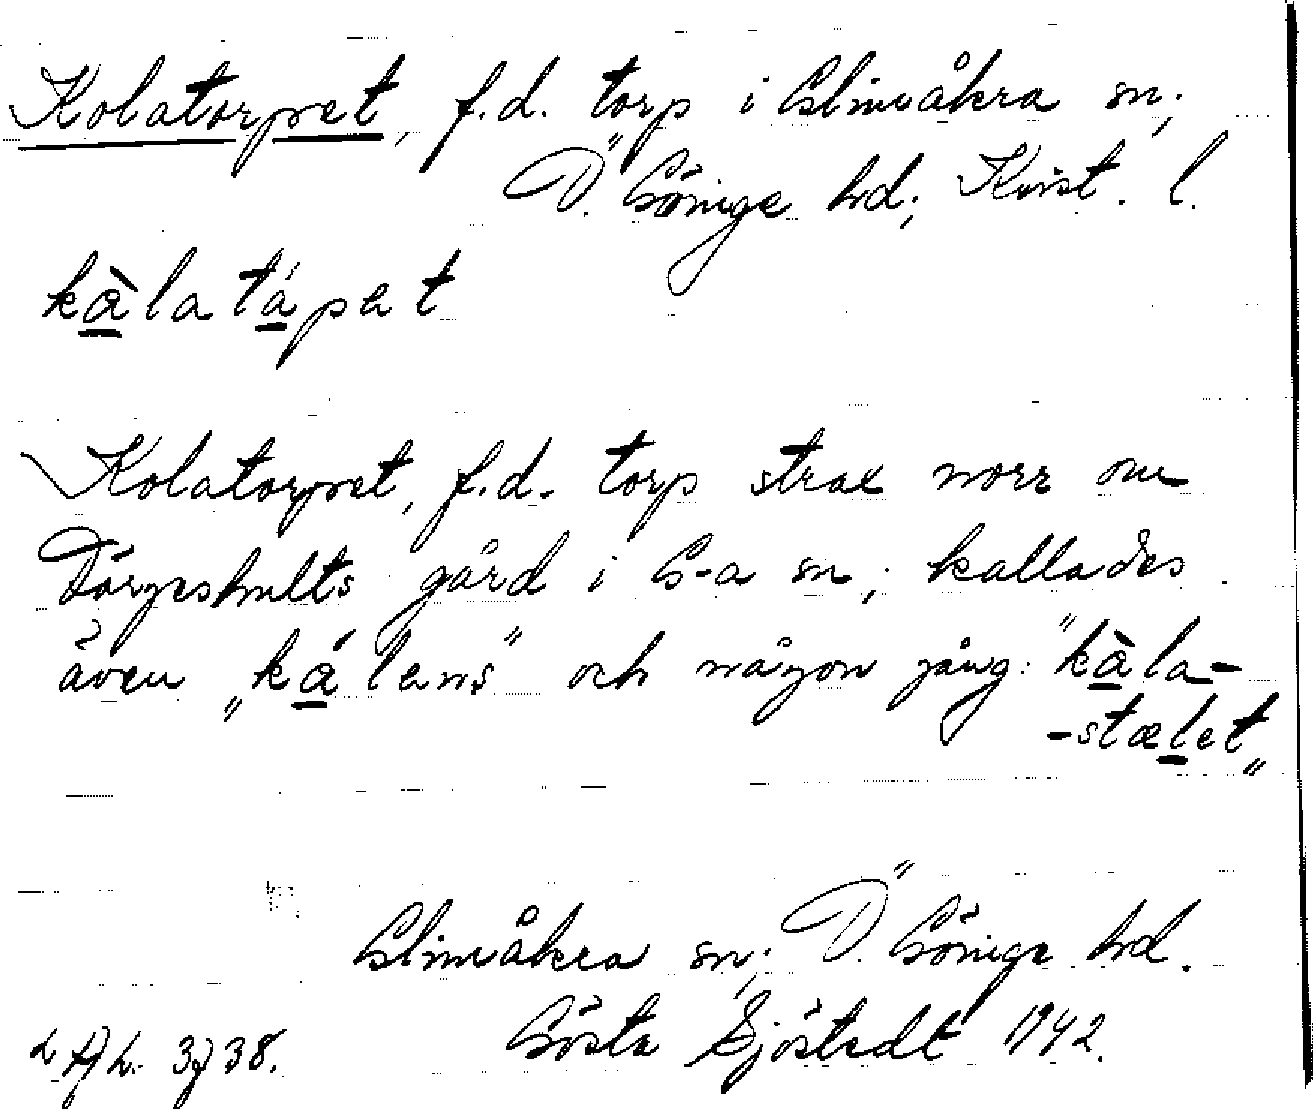 Kolatorpet, f.d. torp i Glimåkra sn;
Ö. Göinge hd; Krist. l.
kàlatápet
Kolatorpet, f.d. torp strax norr om
Dörjeshults gård i G-a sn; kallades
även "kálens" och någon gång: "kàla-
-stælet"
Glimåkra sn; Ö. Göinge hd.
Gösta Sjöstedt 1942.
3738.